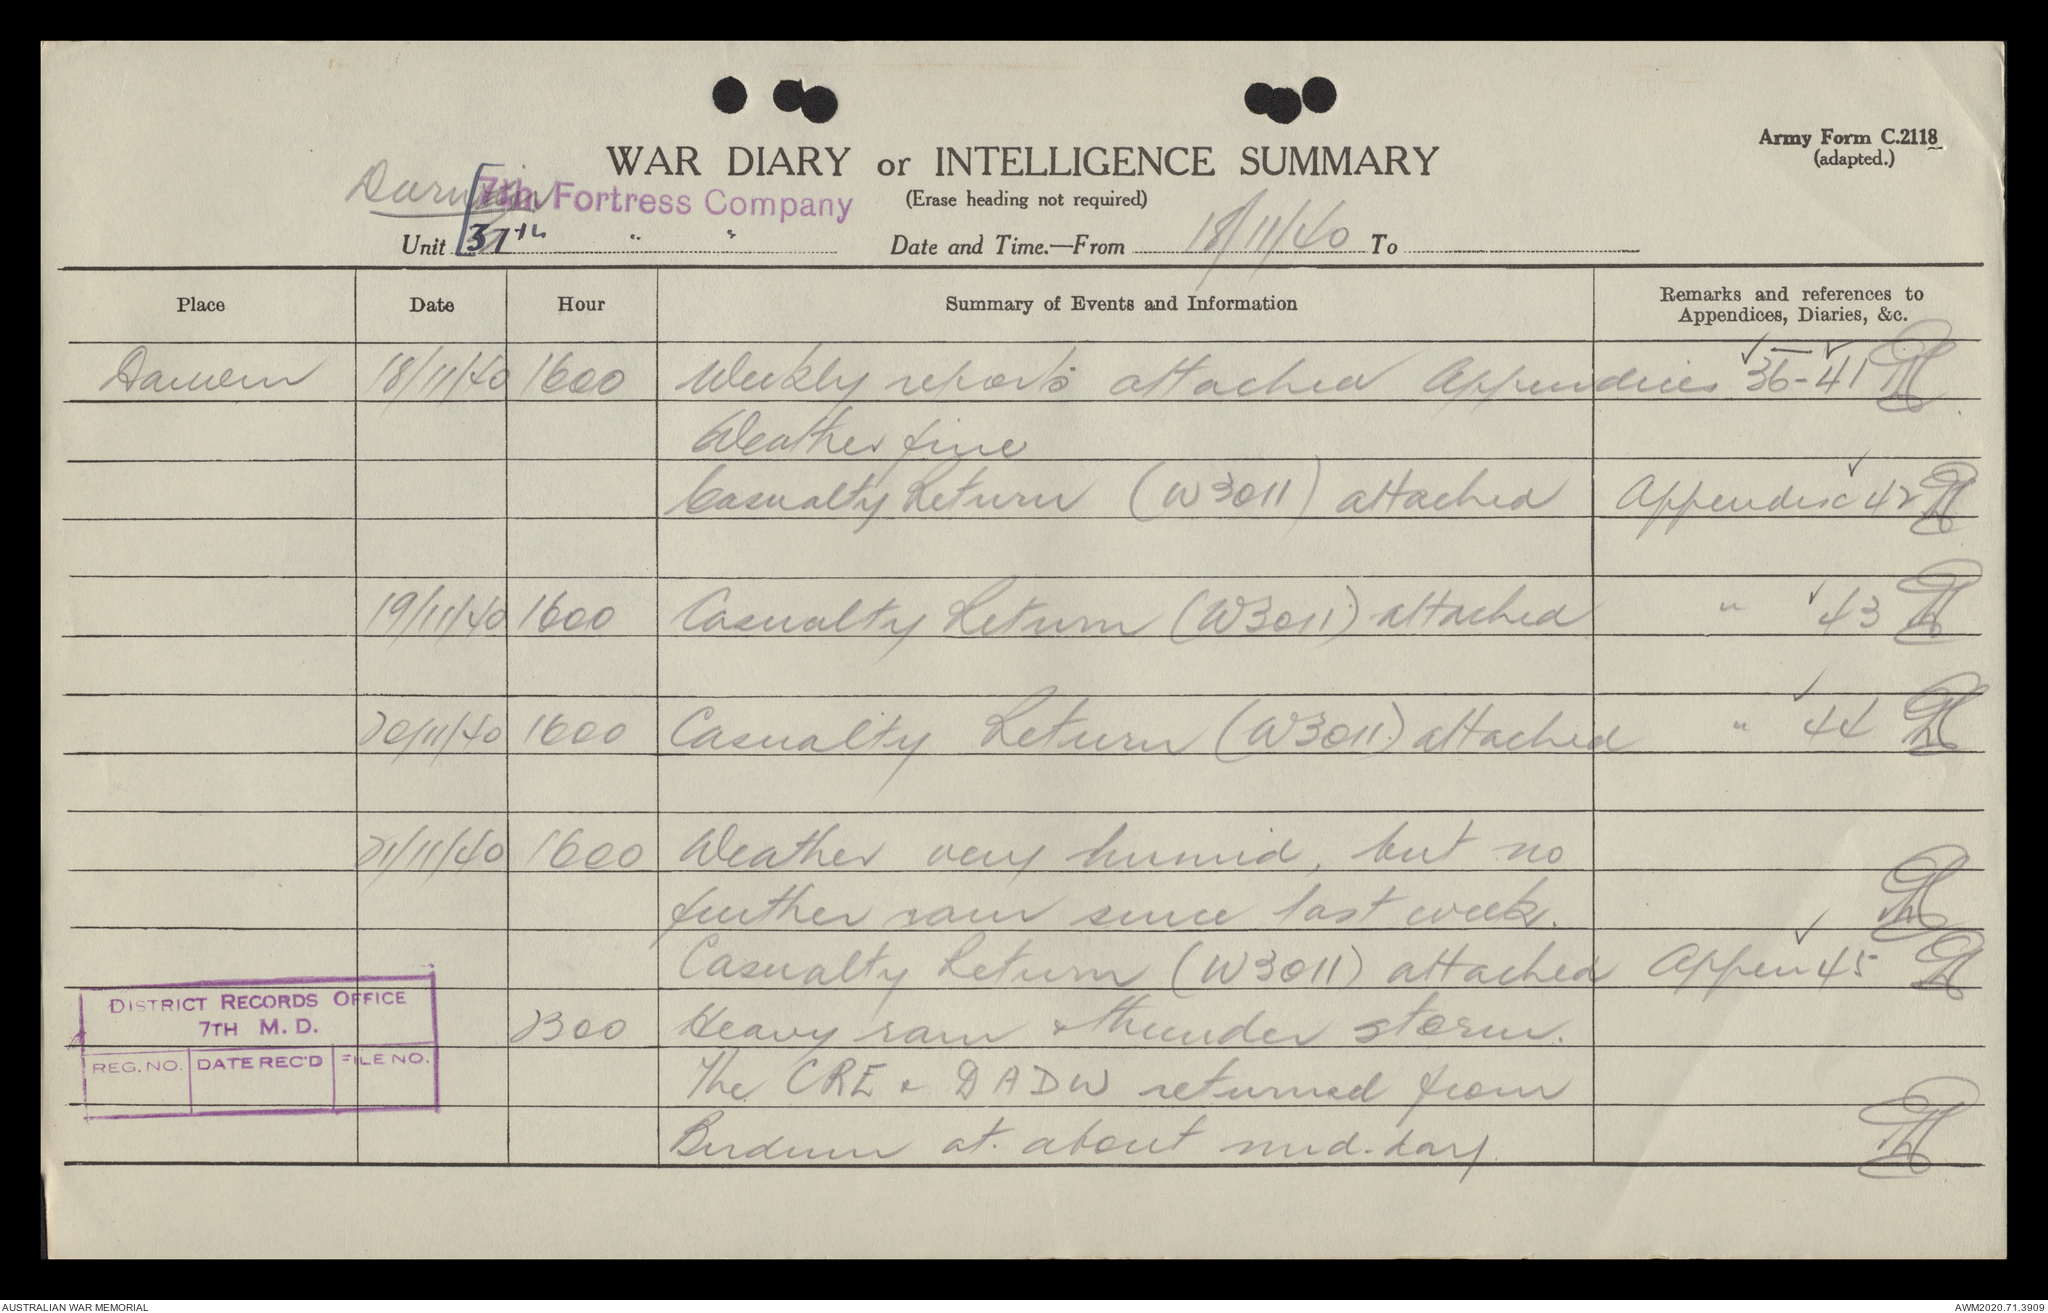 Army Form C.2118
(adapted.)
WAR DIARY or INTELLIGENCE SUMMARY
(Erase heading not required)
Darwin 7th Fortress Company
Unit 37th " " Date and Time.—From 18/11/40 To
Place Date Hour Summary of Events and Information Remarks and references to Appendices, Diaries, &c.
Darwin 18/11/40 1600 Weekly reports attached Appendices 36-41
Weather fine
Casualty Return (W3011) attached Appendix 42
19/11/40 1600 Casualty Return (W3011) attached " 43
20/11/40 1600 Casualty Return (W3011) attached " 44
21/11/40 1600 Weather very humid, but no
further rain since last week.
Casualty Return (W3011) attached Appen 45
2300 Heavy rain & thunder storm.
The CRE & DADW returned from
Birdum at about mid-day.
DISTRICT RECORDS OFFICE
7TH M.D.
REG. NO. DATE REC'D FILE NO.
AUSTRALIAN WAR MEMORIAL AWM2020.71.3909